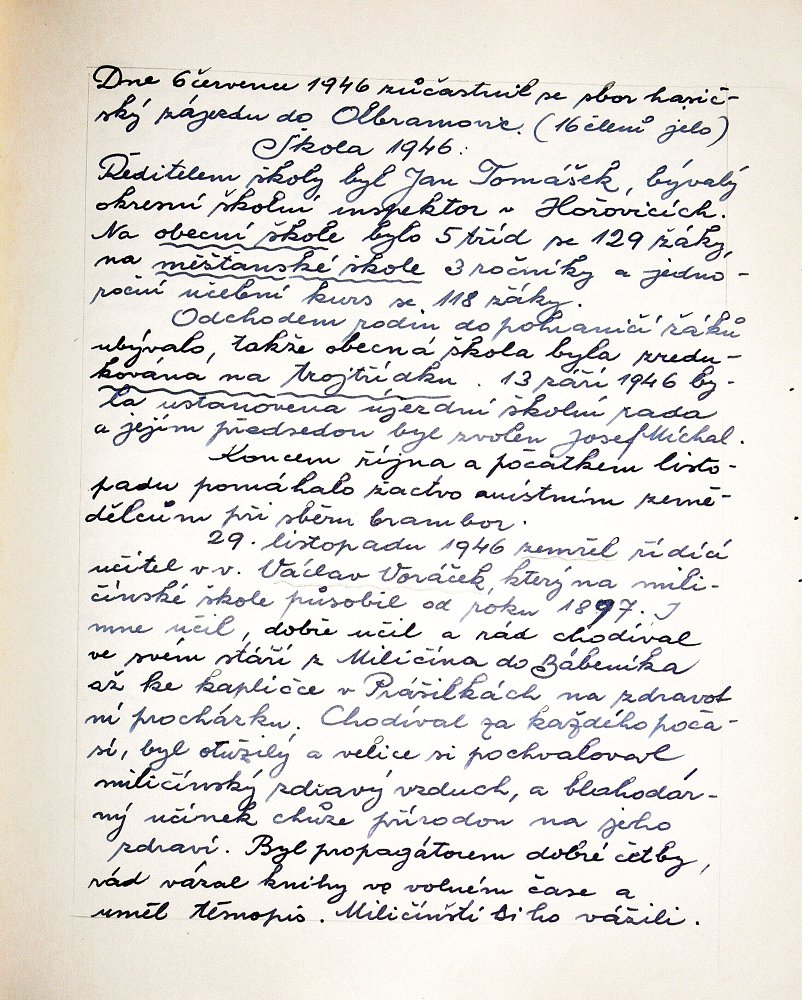 Dne 6 července 1946 zúčastnil se sbor hasič-
ský zájezdu do Olbramovic. (16 členů jelo)
Škola 1946:
Ředitelem školy byl Jan Tomášek, bývalý
okresní školní inspektor v Hořovicích.
Na obecní škole bylo 5 tříd se 129 žáky,
na měšťanské škole 3 ročníky a jedno-
roční učební kurs se 118 žáky.
Odchodem rodin do pohraničí žáků
ubývalo, takže obecná škola byla zredu-
kována na trojtřídku. 13 září 1946 by-
la ustanovena újezdní školní rada
a jejím předsedou byl zvolen Josef Míchal.
Koncem října a počátkem listo-
padu pomáhalo žactvo místním země-
dělcům při sběru brambor.
29. listopadu 1946 zemřel řídící
učitel v v. Václav Voráček, který na mili-
čínské škole působil od roku 1897. I
mne učil, dobře učil a rád chodíval
ve svém stáří z Miličína do Bábeníka
až ke kapličce v Prášilkách na zdravot
ní procházku. Chodíval za každého počа-
sí, byl otužilý a velice si pochvaloval
miličínský zdravý vzduch, a blahodár-
ný účinek chůze přírodou na jeho
zdraví. Byl propagátorem dobré četby,
rád vázal knihy ve volném čase a
uměl těsnopis. Miličínští si ho vážili.